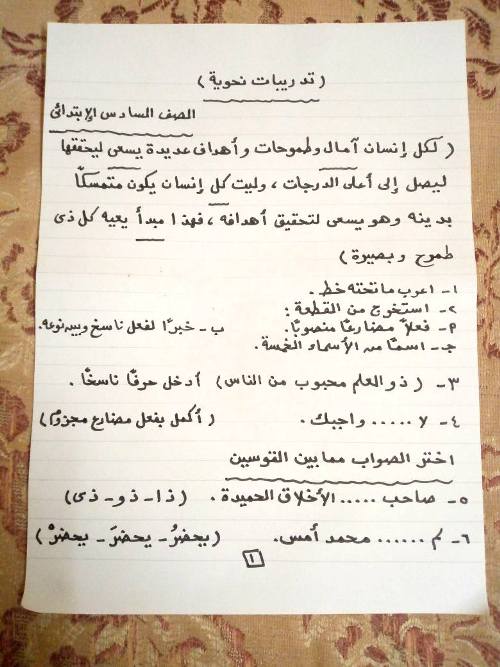 ( تدريبات نحوية )
الصف السادس الإبتدائى
( لكل إنسان آمال وطموحات وأهداف عديدة يسعى ليحققها
ليصل إلى أعلى الدرجات ، وليت كل إنسان يكون متمسكًا
بدينه وهو يسعى لتحقيق أهدافه ، فهذا مبدأ يعيه كل ذى
طموح وبصيرة )
١- اعرب ما تحته خط .
٢- استخرج من القطعة :
٢- فعلاً مضارعًا منصوبًا . ب - خبرًا لفعل ناسخ وبين نوعه .
جـ - اسمًا من الأسماء الخمسة .
٣- ( ذو العلم محبوب من الناس ) أدخل حرفًا ناسخًا .
٤- لا ..... واجبك . ( أكمل بفعل مضارع مجزوم )
اختر الصواب مما بين القوسين
٥- صاحب ..... الأخلاق الحميدة . ( ذا - ذو - ذى )
٦- لم ...... محمد أمس . ( يحضرُ - يحضرَ - يحضرْ )
١